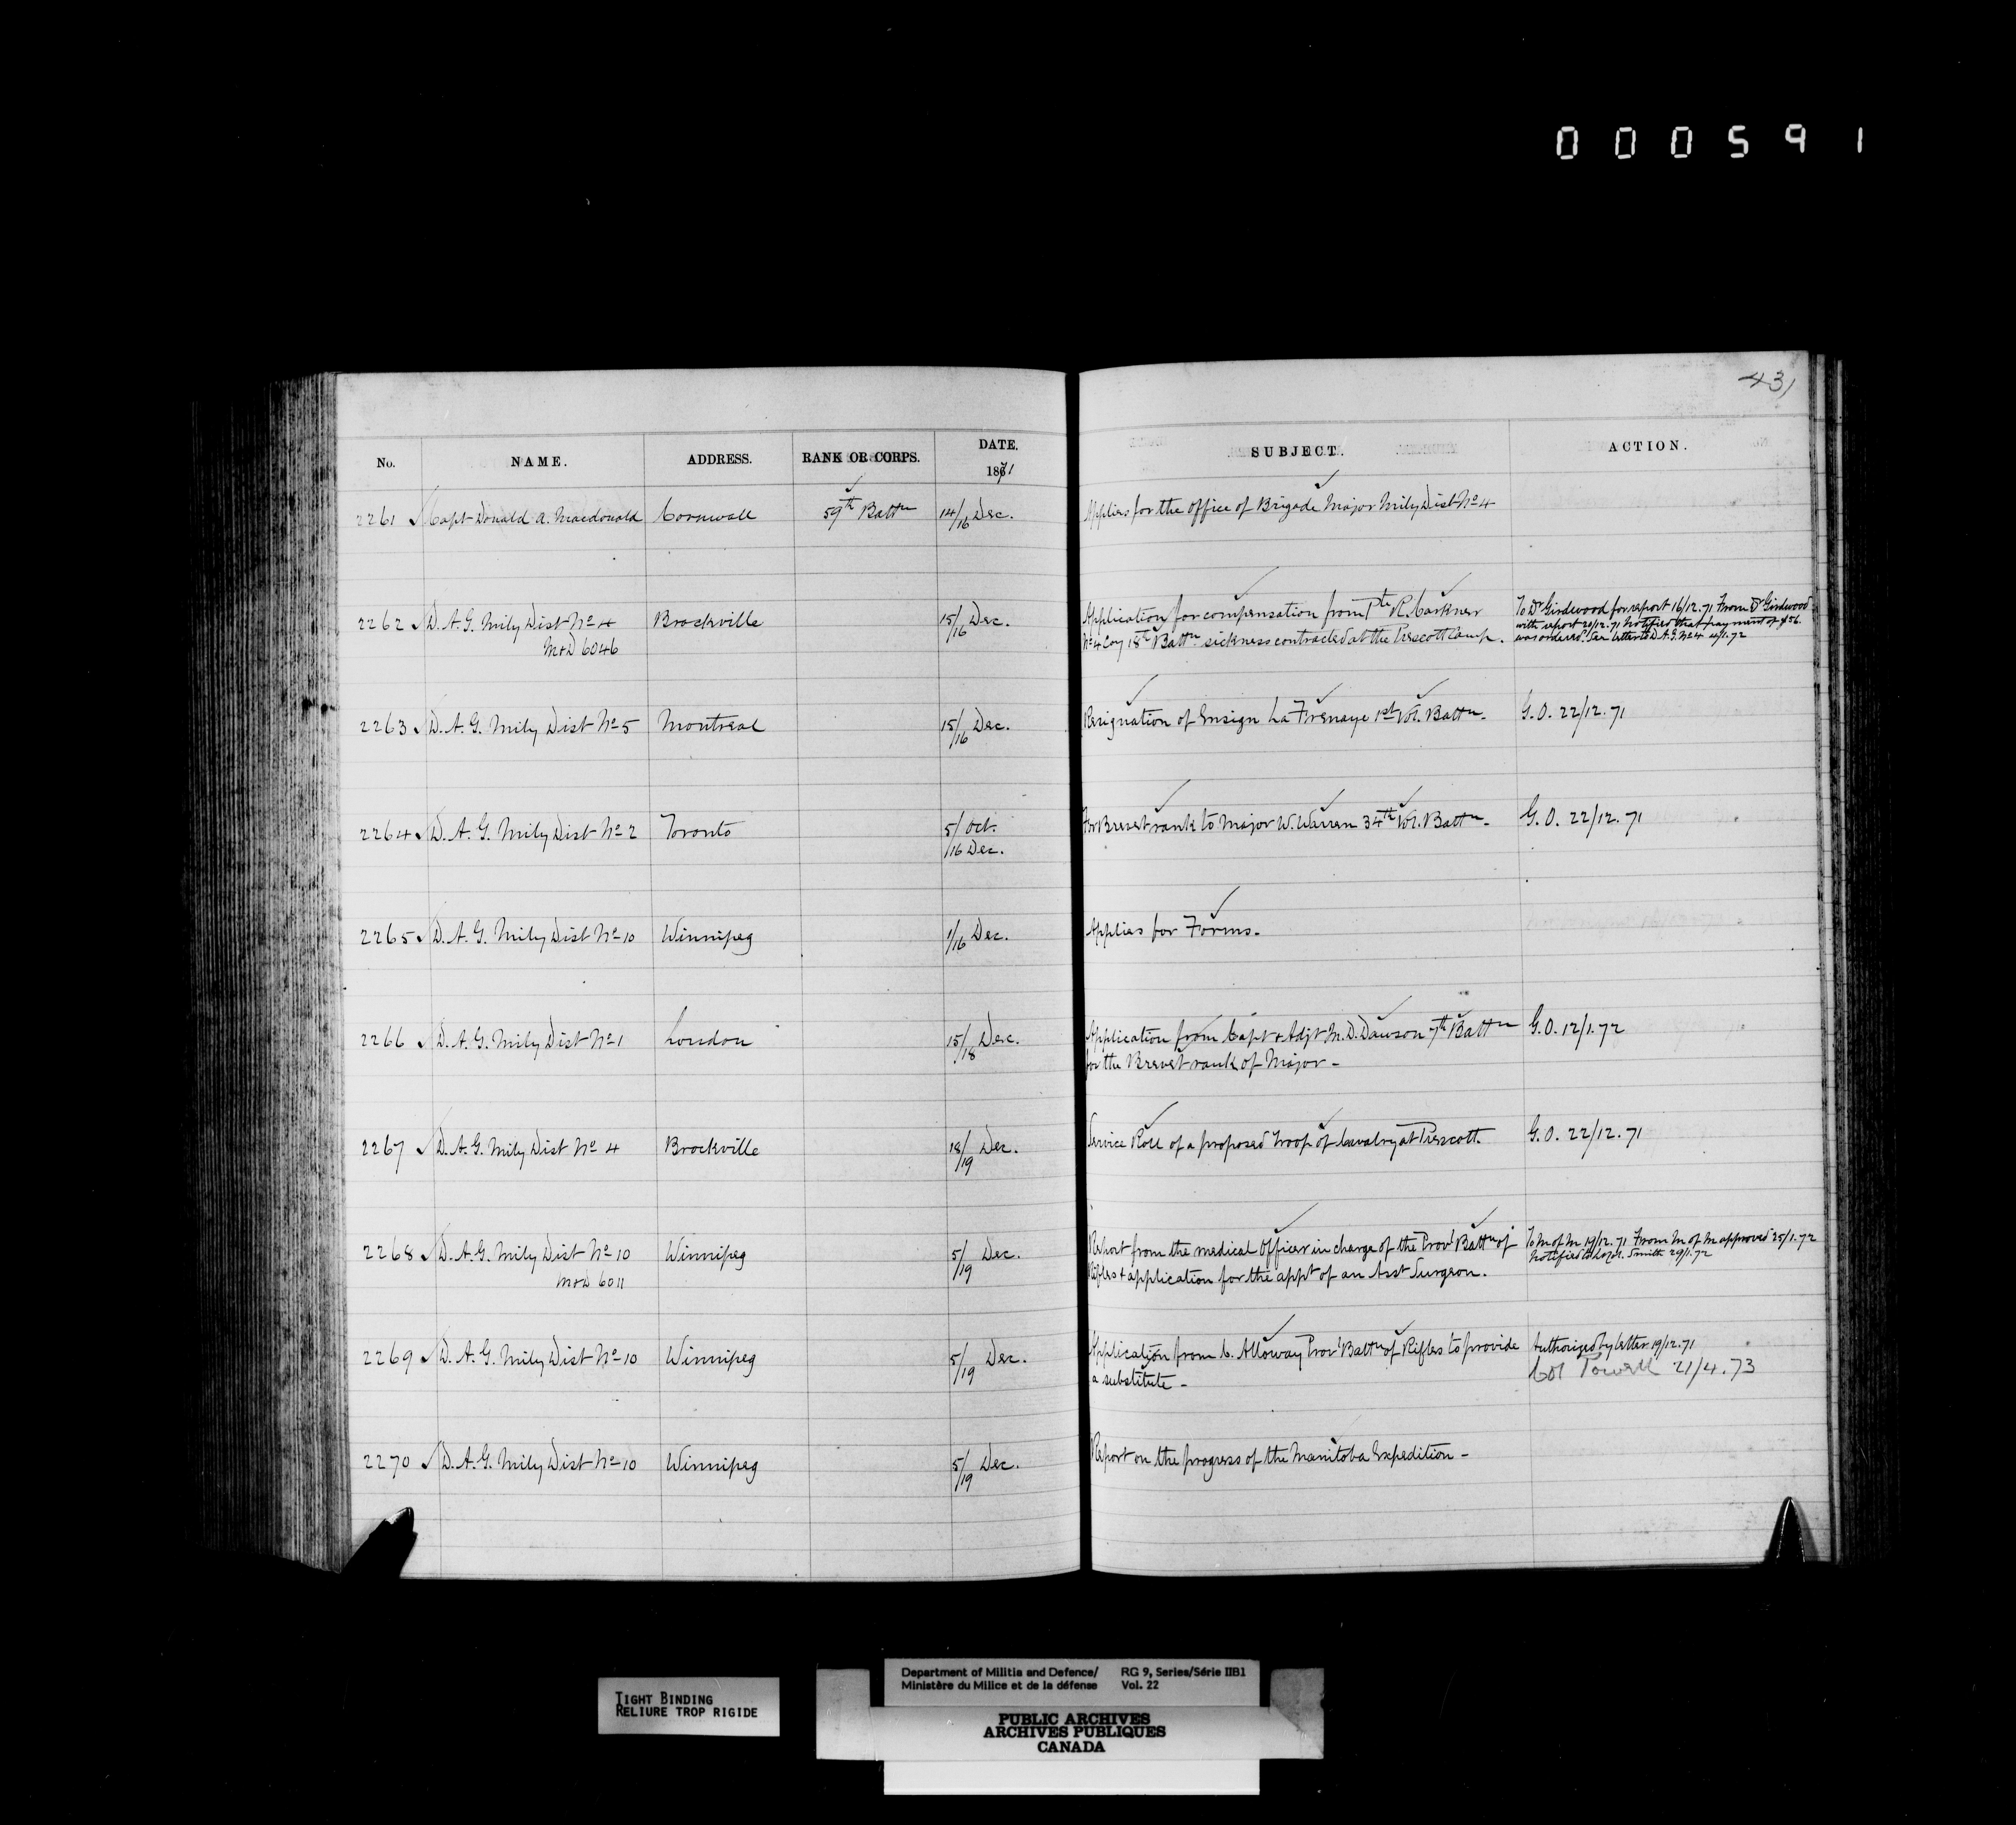 000591
431
No. NAME. ADDRESS. RANK OR CORPS. DATE. 1871 SUBJECT. ACTION.
2261 Capt Donald A. Macdonald Cornwall 59th Battn 14/16 Dec. Applies for the office of Brigade Major Mily Dist No 4
2262 D.A.G. Mily Dist No 4 Brockville 15/16 Dec. Application for compensation from Pte R. Carkner To Dr Girdwood for report 16/12.71 From Dr Girdwood
M&D 6046 No 4 Coy 18th Battn sickness contracted at the Prescott Camp. with report 20/12.71 Notified that payment of $56.
was ordered. See letter to D.A.G. No 4 4/1.72
2263 D.A.G. Mily Dist No 5 Montreal 15/16 Dec. Resignation of Ensign La Frenaye 1st Vol. Battn. G.O. 22/12.71
2264 D.A.G. Mily Dist No 2 Toronto 5/ Oct. For Brevet rank to Major W. Warren 34th Vol. Battn. G.O. 22/12.71
/16 Dec.
2265 D.A.G. Mily Dist No 10 Winnipeg 1/16 Dec. Applies for Forms.
2266 D.A.G. Mily Dist No 1 London 15/18 Dec. Application from Capt & Adjt M.D. Dawson 7th Battn G.O. 12/1.72
for the Brevet rank of Major -
2267 D.A.G. Mily Dist No 4 Brockville 18/19 Dec. Service Roll of a proposed Troop of Cavalry at Prescott. G.O. 22/12.71
2268 D.A.G. Mily Dist No 10 Winnipeg 5/19 Dec. Report from the medical Officer in charge of the Provl Battn of To M of M 19/12.71 From M of M approved 25/1.72
M&D 6011 Rifles & application for the appt of an Asst Surgeon. Notified Smith 29/1.72
2269 D.A.G. Mily Dist No 10 Winnipeg 5/19 Dec. Application from C. Alloway Provl Battn of Rifles to provide Authorized by letter 19/12.71
a substitute - Col Powell 21/4.73
2270 D.A.G. Mily Dist No 10 Winnipeg 5/19 Dec. Report on the progress of the Manitoba Expedition -
TIGHT BINDING
RELIURE TROP RIGIDE
Department of Militia and Defence/ RG 9, Series/Série IIB1
Ministère du Milice et de la défense Vol. 22
PUBLIC ARCHIVES
ARCHIVES PUBLIQUES
CANADA